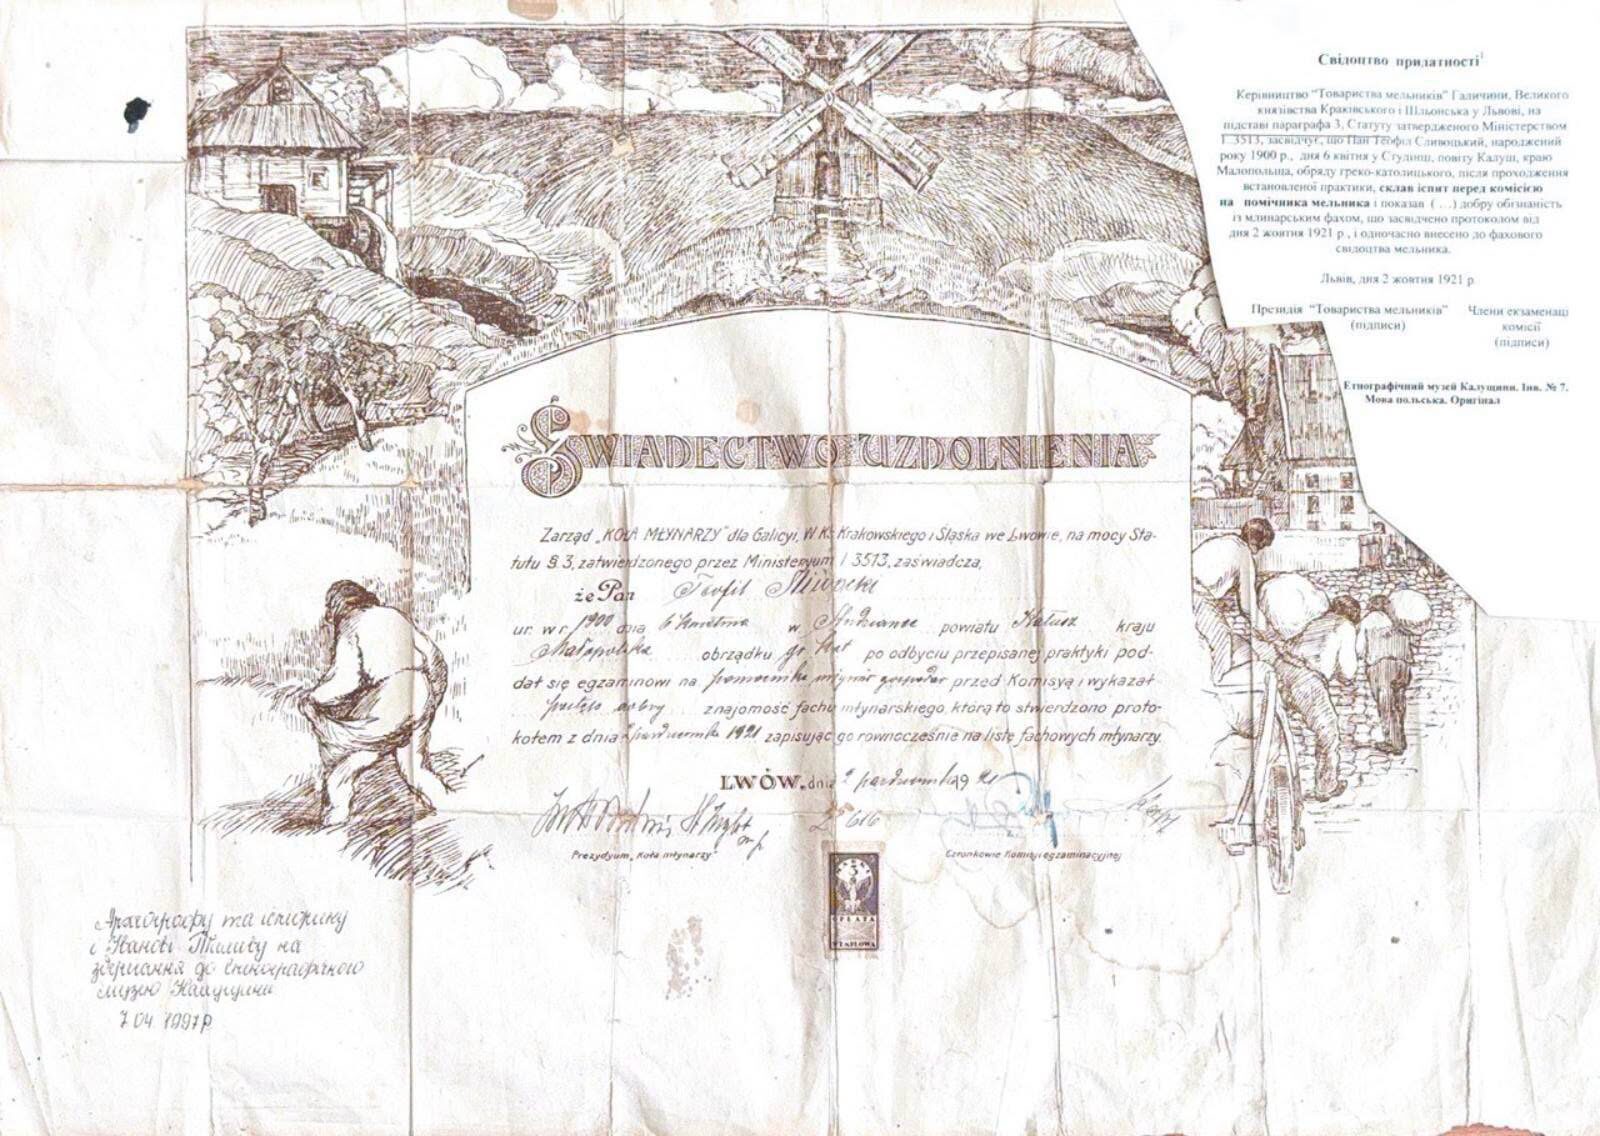 Свідоцтво придатності¹
Керівництво "Товариства мельників" Галичини, Великого
князівства Краківського і Шльонська у Львові, на
підставі параграфа 3, Статуту затвердженого Міністерством
1 3513, засвідчує, що Пан Теофіл Сливоцький, народжений
року 1900 р., дня 6 квітня у Студінці, повіту Калуш, краю
Малопольща, обряду греко-католицького, після проходження
встановленої практики, склав іспит перед комісією
на помічника мельника і показав (...) добру обізнаність
із млинарським фахом, що засвідчено протоколом від
дня 2 жовтня 1921 р., і одночасно внесено до фахового
свідоцтва мельника.
Львів, дня 2 жовтня 1921 р.
Президія "Товариства мельників" Члени екзаменаці
(підписи) комісії
(підписи)
Етнографічний музей Калущини. Інв. № 7.
Мова польська. Оригінал
ŚWIADECTWO UZDOLNIENIA
Zarząd „KOŁA MŁYNARZY" dla Galicyi, W. Ks. Krakowskiego i Śląska we Lwowie, na mocy Sta-
tutu §. 3, zatwierdzonego przez Ministeryum l 3513, zaświadcza,
że Pan Teofil
ur. w r. 1900 dnia 6 Kwietnia w powiatu Kałusz kraju
Małopolska obrządku gr kat po odbyciu przepisanej praktyki pod-
dał się egzaminowi na pomocnika przed Komisyą i wykazał
dobry znajomość fachu młynarskiego, którą to stwierdzono proto-
kołem z dnia 2 października 1921 zapisując go równocześnie na listę fachowych młynarzy.
LWÓW, dnia 2 października 1921
Prezydyum „Koła młynarzy" Członkowie Komisyi egzaminacyjnej
OPŁATA
STEMPLOWA
Археографу та історику
Іванові на
зберігання до етнографічного
музею Калущини
7 04 1997р.